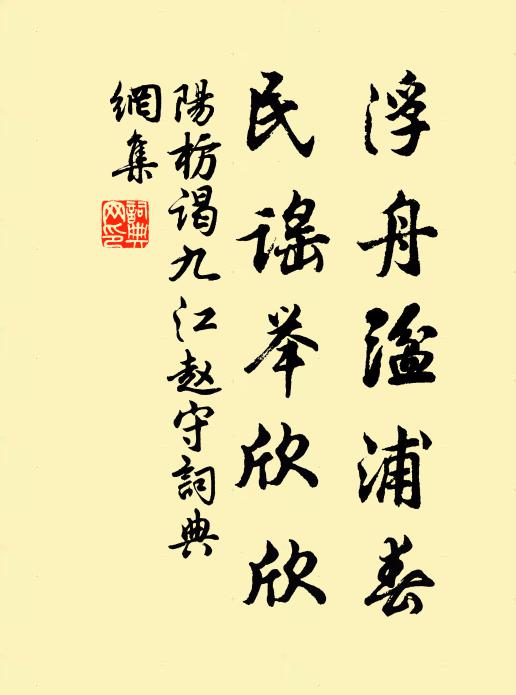 浮舟湓浦春
民谣举欣欣
陽枋谒九江赵守詞典
網集
詞典
网印